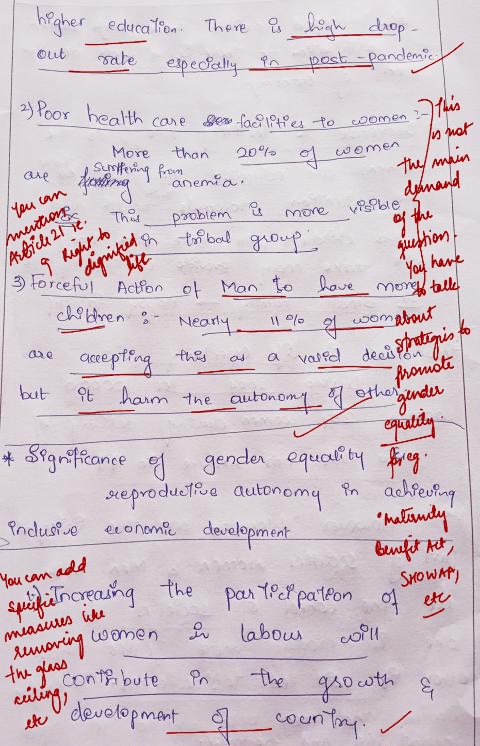 higher education. There is high drop-
out rate especially in post-pandemic.
2) Poor health care facilities to women :-
More than 20% of women
are suffering from anemia.
This problem is more visible
in tribal group.
You can
mention
Article 21 i.e.
Right to
dignified
life
3) Forceful Action of Man to have more
children :- Nearly 11% of women
are accepting this as a valid decision
but it harm the autonomy of other
This
is not
the main
demand
of the
question.
You have
to talk
about
strategies to
promote
gender
equality.
for eg.
• Maternity
Benefit Act,
SHOWAP,
etc
* Significance of gender equality &
reproductive autonomy in achieving
inclusive economic development
1) Increasing the participation of
women in labour will
contribute in the growth &
development of country.
You can add
specific
measures like
removing
the glass
ceiling,
etc